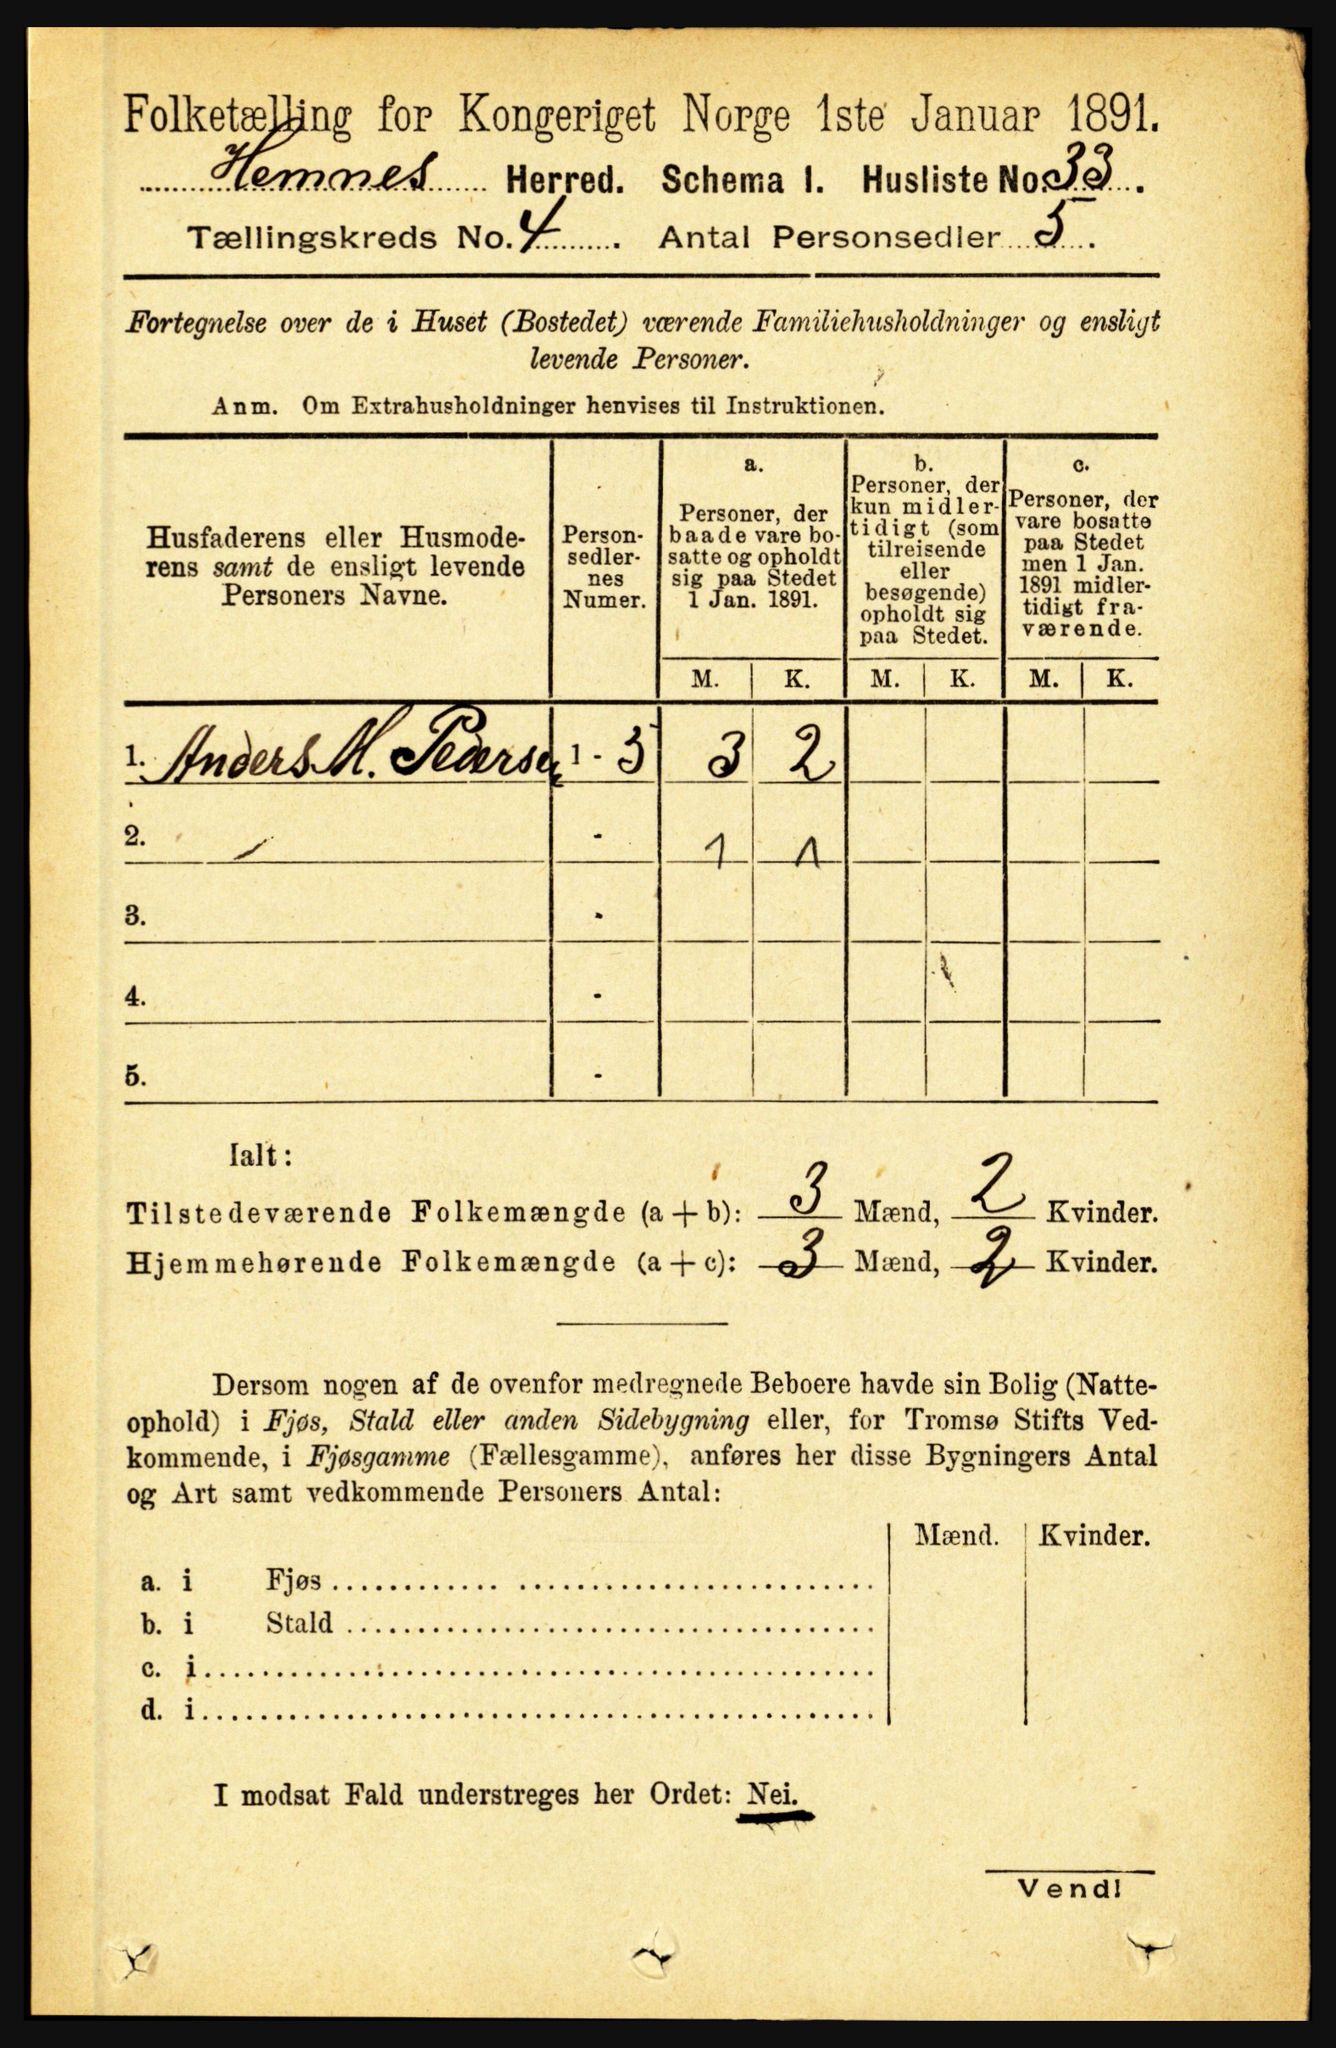 Folketælling for Kongeriget Norge 1ste Januar 1891.
Hemnes Herred. Schema I. Husliste No. 33.
Tællingskreds No. 4. Antal Personsedler 5.
Fortegnelse over de i Huset (Bostedet) værende Familiehusholdninger og ensligt
levende Personer.
Anm. Om Extrahusholdninger henvises til Instruktionen.
Husfaderens eller Husmode-
rens samt de ensligt levende
Personers Navne.
Person-
sedler-
nes
Numer.
a.
Personer, der
baade vare bo-
satte og opholdt
sig paa Stedet
1 Jan. 1891.
b.
Personer, der
kun midler-
tidigt (som
tilreisende
eller
besøgende)
opholdt sig
paa Stedet.
c.
Personer, der
vare bosatte
paa Stedet
men 1 Jan.
1891 midler-
tidigt fra-
værende.
M. K. M. K. M. K.
1. Anders M. Pedersen 1 - 5 3 2
2. - 1 1
3. -
4. -
5. -
Ialt:
Tilstedeværende Folkemængde (a + b): 3 Mænd, 2 Kvinder.
Hjemmehørende Folkemængde (a + c): 3 Mænd, 2 Kvinder.
Dersom nogen af de ovenfor medregnede Beboere havde sin Bolig (Natte-
ophold) i Fjøs, Stald eller anden Sidebygning eller, for Tromsø Stifts Ved-
kommende, i Fjøsgamme (Fællesgamme), anføres her disse Bygningers Antal
og Art samt vedkommende Personers Antal:
Mænd. Kvinder.
a. i Fjøs
b. i Stald
c. i
d. i
I modsat Fald understreges her Ordet: Nei.
Vend!